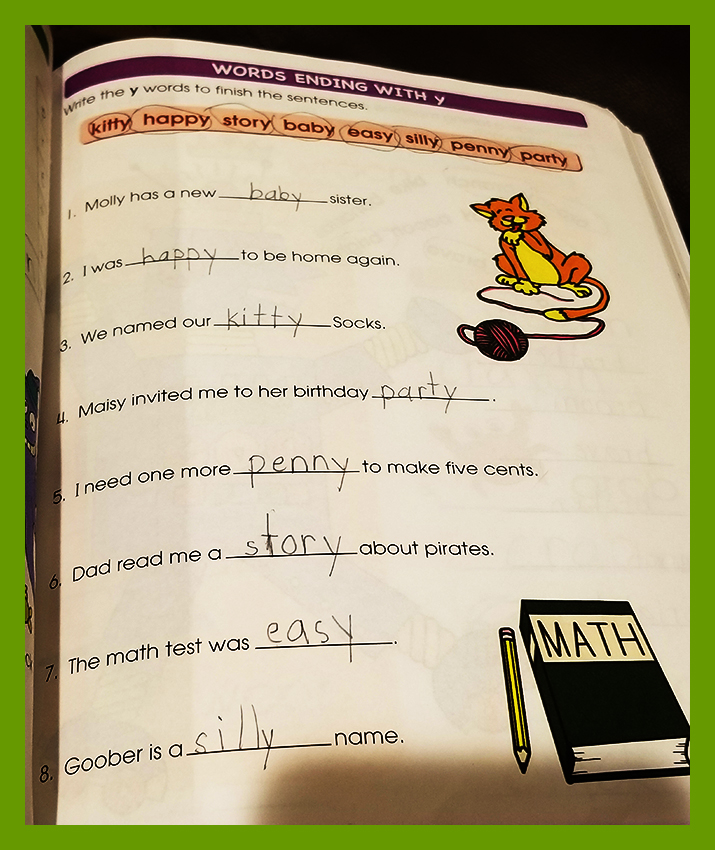 WORDS ENDING WITH y
Write the y words to finish the sentences.
kitty happy story baby easy silly penny party
1. Molly has a new baby sister.
2. I was happy to be home again.
3. We named our kitty Socks.
4. Maisy invited me to her birthday party.
5. I need one more penny to make five cents.
6. Dad read me a story about pirates.
7. The math test was easy.
8. Goober is a silly name.
MATH